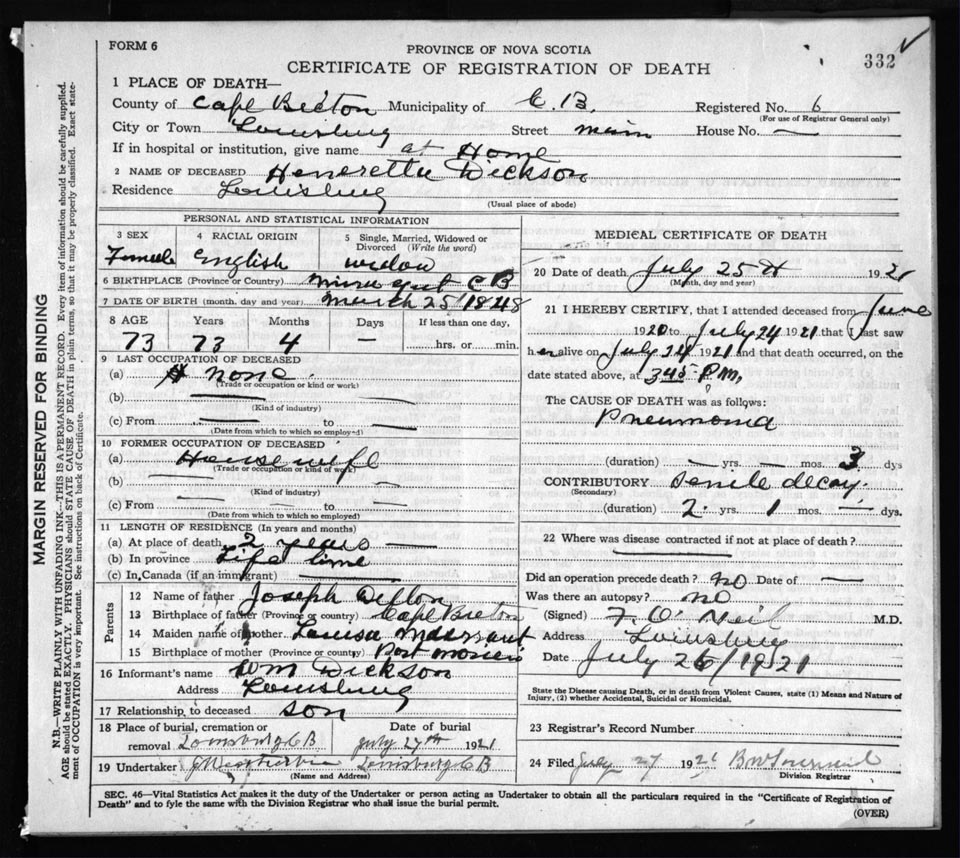 FORM 6
332
PROVINCE OF NOVA SCOTIA
CERTIFICATE OF REGISTRATION OF DEATH
1 PLACE OF DEATH—
County of Cape Breton Municipality of C.B. Registered No. 6
(For use of Registrar General only)
City or Town Louisburg Street main House No. —
If in hospital or institution, give name at Home
2 NAME OF DECEASED Heneretta Dickson
Residence Louisburg
(Usual place of abode)
PERSONAL AND STATISTICAL INFORMATION
3 SEX 4 RACIAL ORIGIN 5 Single, Married, Widowed or Divorced (Write the word)
Female English widow
6 BIRTHPLACE (Province or Country) C B
7 DATE OF BIRTH (month, day and year) March 25 1848
8 AGE Years Months Days If less than one day,
73 73 4 — hrs. or min.
9 LAST OCCUPATION OF DECEASED
(a) none
(Trade or occupation or kind or work)
(b)
(Kind of industry)
(c) From to
(Date from which to which so employed)
10 FORMER OCCUPATION OF DECEASED
(a) Housewife
(Trade or occupation or kind of work)
(b)
(Kind of industry)
(c) From to
(Date from which to which so employed)
11 LENGTH OF RESIDENCE (In years and months)
(a) At place of death 2 years
(b) In province Life time
(c) In Canada (if an immigrant)
Parents
12 Name of father Joseph
13 Birthplace of father (Province or country) Cape Breton
14 Maiden name of mother Louisa
15 Birthplace of mother (Province or country) Port
16 Informant's name Wm Dickson
Address Louisburg
17 Relationship to deceased son
18 Place of burial, cremation or removal Louisburg C B Date of burial July 27th 1921
19 Undertaker Louisburg C B
(Name and Address)
MEDICAL CERTIFICATE OF DEATH
20 Date of death July 25th 1921
(Month, day and year)
21 I HEREBY CERTIFY, that I attended deceased from June
1920 to July 24 1921 that I last saw
her alive on July 24 1921 and that death occurred, on the
date stated above, at 3 45 P.M.
The CAUSE OF DEATH was as follows:
Pneumonia
(duration) — yrs. — mos. 3 dys
CONTRIBUTORY Senile decay
(Secondary)
(duration) 2 yrs. 1 mos. — dys.
22 Where was disease contracted if not at place of death?
Did an operation precede death? no Date of —
Was there an autopsy? no
(Signed) F. O'Neil M.D.
Address Louisburg
Date July 26/1921
State the Disease causing Death, or in death from Violent Causes, state (1) Means and Nature of
Injury, (2) whether Accidental, Suicidal or Homicidal.
23 Registrar's Record Number
24 Filed July 27 1921
Division Registrar
SEC. 46—Vital Statistics Act makes it the duty of the Undertaker or person acting as Undertaker to obtain all the particulars required in the "Certificate of Registration of
Death" and to fyle the same with the Division Registrar who shall issue the burial permit.
(OVER)
MARGIN RESERVED FOR BINDING
N.B.—WRITE PLAINLY WITH UNFADING INK—THIS IS A PERMANENT RECORD. Every item of information should be carefully supplied.
AGE should be stated EXACTLY. PHYSICIANS should STATE CAUSE OF DEATH in plain terms, so that it may be properly classified. Exact statement of OCCUPATION is very important. See instructions on back of Certificate.